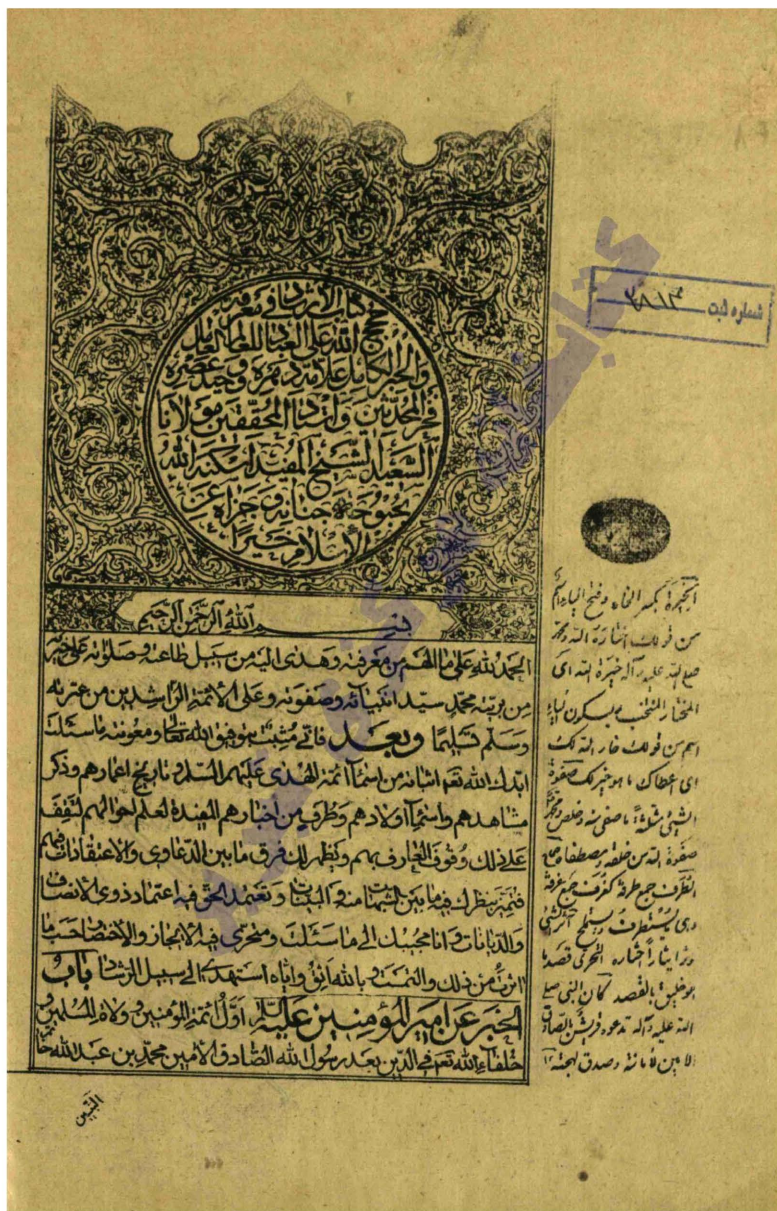 كتاب الإرشاد في معرفة
حجج الله على العباد للعالم العامل
والحبر الكامل علامة دهره و وحيد عصره
فخر المحدثين و استاد المحققين مولانا
السعيد الشيخ المفيد اسكنه الله
بحبوحة جنانه و جزاه عن
الإسلام خيرا
بسم الله الرحمن الرحيم
الحمد لله على ما الهم من معرفته وهدى اليه من سبيل طاعته و صلوته على خيرته
من بريته محمد سيد انبيائه و صفوته و على الأئمة الراشدين من عترته
وسلم تسليما و بعد فاني مثبت بتوفيق الله تعالى و معونته ما سئلت
ايدك الله اثباته من اسماء ائمة الهدى عليهم السلم و تاريخ اعمارهم و ذكر
مشاهدهم و اسماء اولادهم و طرف من اخبارهم المفيدة لعلم احوالهم لتقف
على ذلك وقوف العارف بهم و يظهر لك فرق ما بين الدعاوى و الاعتقادات فيهم
فتميز بنظرك فيه ما بين الشبهات منه و البينات و تعتمد الحق فيه اعتماد ذوى الأنصاف
و الديانات و انا مجيبك الى ما سئلت و متحرى فيه الايجاز و الاختصار حسب ما
اثرت من ذلك و التمست و بالله اثق و اياه استهدى الى سبيل الرشاد باب
الخبر عن امير المؤمنين عليه السلام اول ائمة المؤمنين و ولاة المسلمين و
خلفاء الله تعم في الدين بعد رسول الله الصادق الأمين محمد بن عبد الله خاتم
النبيين
شماره ثبت
الخيرة بكسر الخاء و فتح الياء اسم
من قولك اختاره الله و محمد
صلى الله عليه و آله خيرة الله اى
المختار المنتخب و بسكون الياء
اسم من قولك خار الله لك
اى اعطاك ما هو خير لك صفوة
الشيء مثلثة ما صفى منه و خلص و محمد
صفوة الله من خلقه و مصطفاه
الطرف جمع طرفة كغرف جمع غرفة
و هى ما يستطرف و يستملح
التحرى قصد ما
هو خليق بالقصد كان النبى صلى
الله عليه و آله تدعوه قريش الصادق
الامين لأمانته و صدق لهجته ١٢